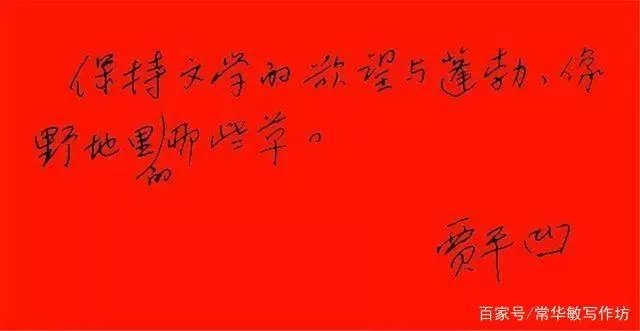 保持文学的欲望与蓬勃、像
野地里的那些草。
贾平凹
百家号/常华敏写作坊